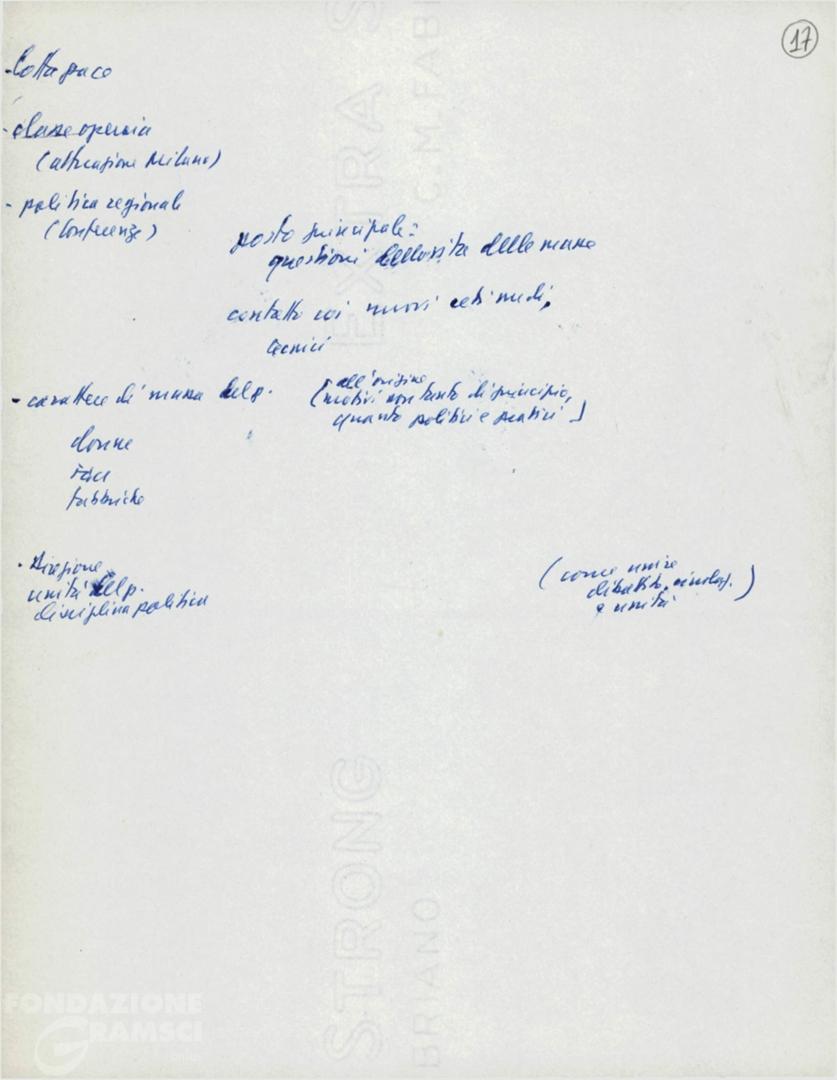 17
- lotta pace
- classe operaia
(attuazione Milano)
- politica regionale
(Conferenze)
posto principale:
questioni della vita delle masse
contatto coi nuovi ceti medi,
tecnici
- carattere di massa del p.
all'origine
(motivi non tanto di principio,
quanto politici e pratici)
donne
fabbriche
- Direzione
unità del p.
disciplina politica
(come unire
dibattito,
e unità)
EXTRA S
C.M. FAB
STRONG
BRIANO
FONDAZIONE
GRAMSCI